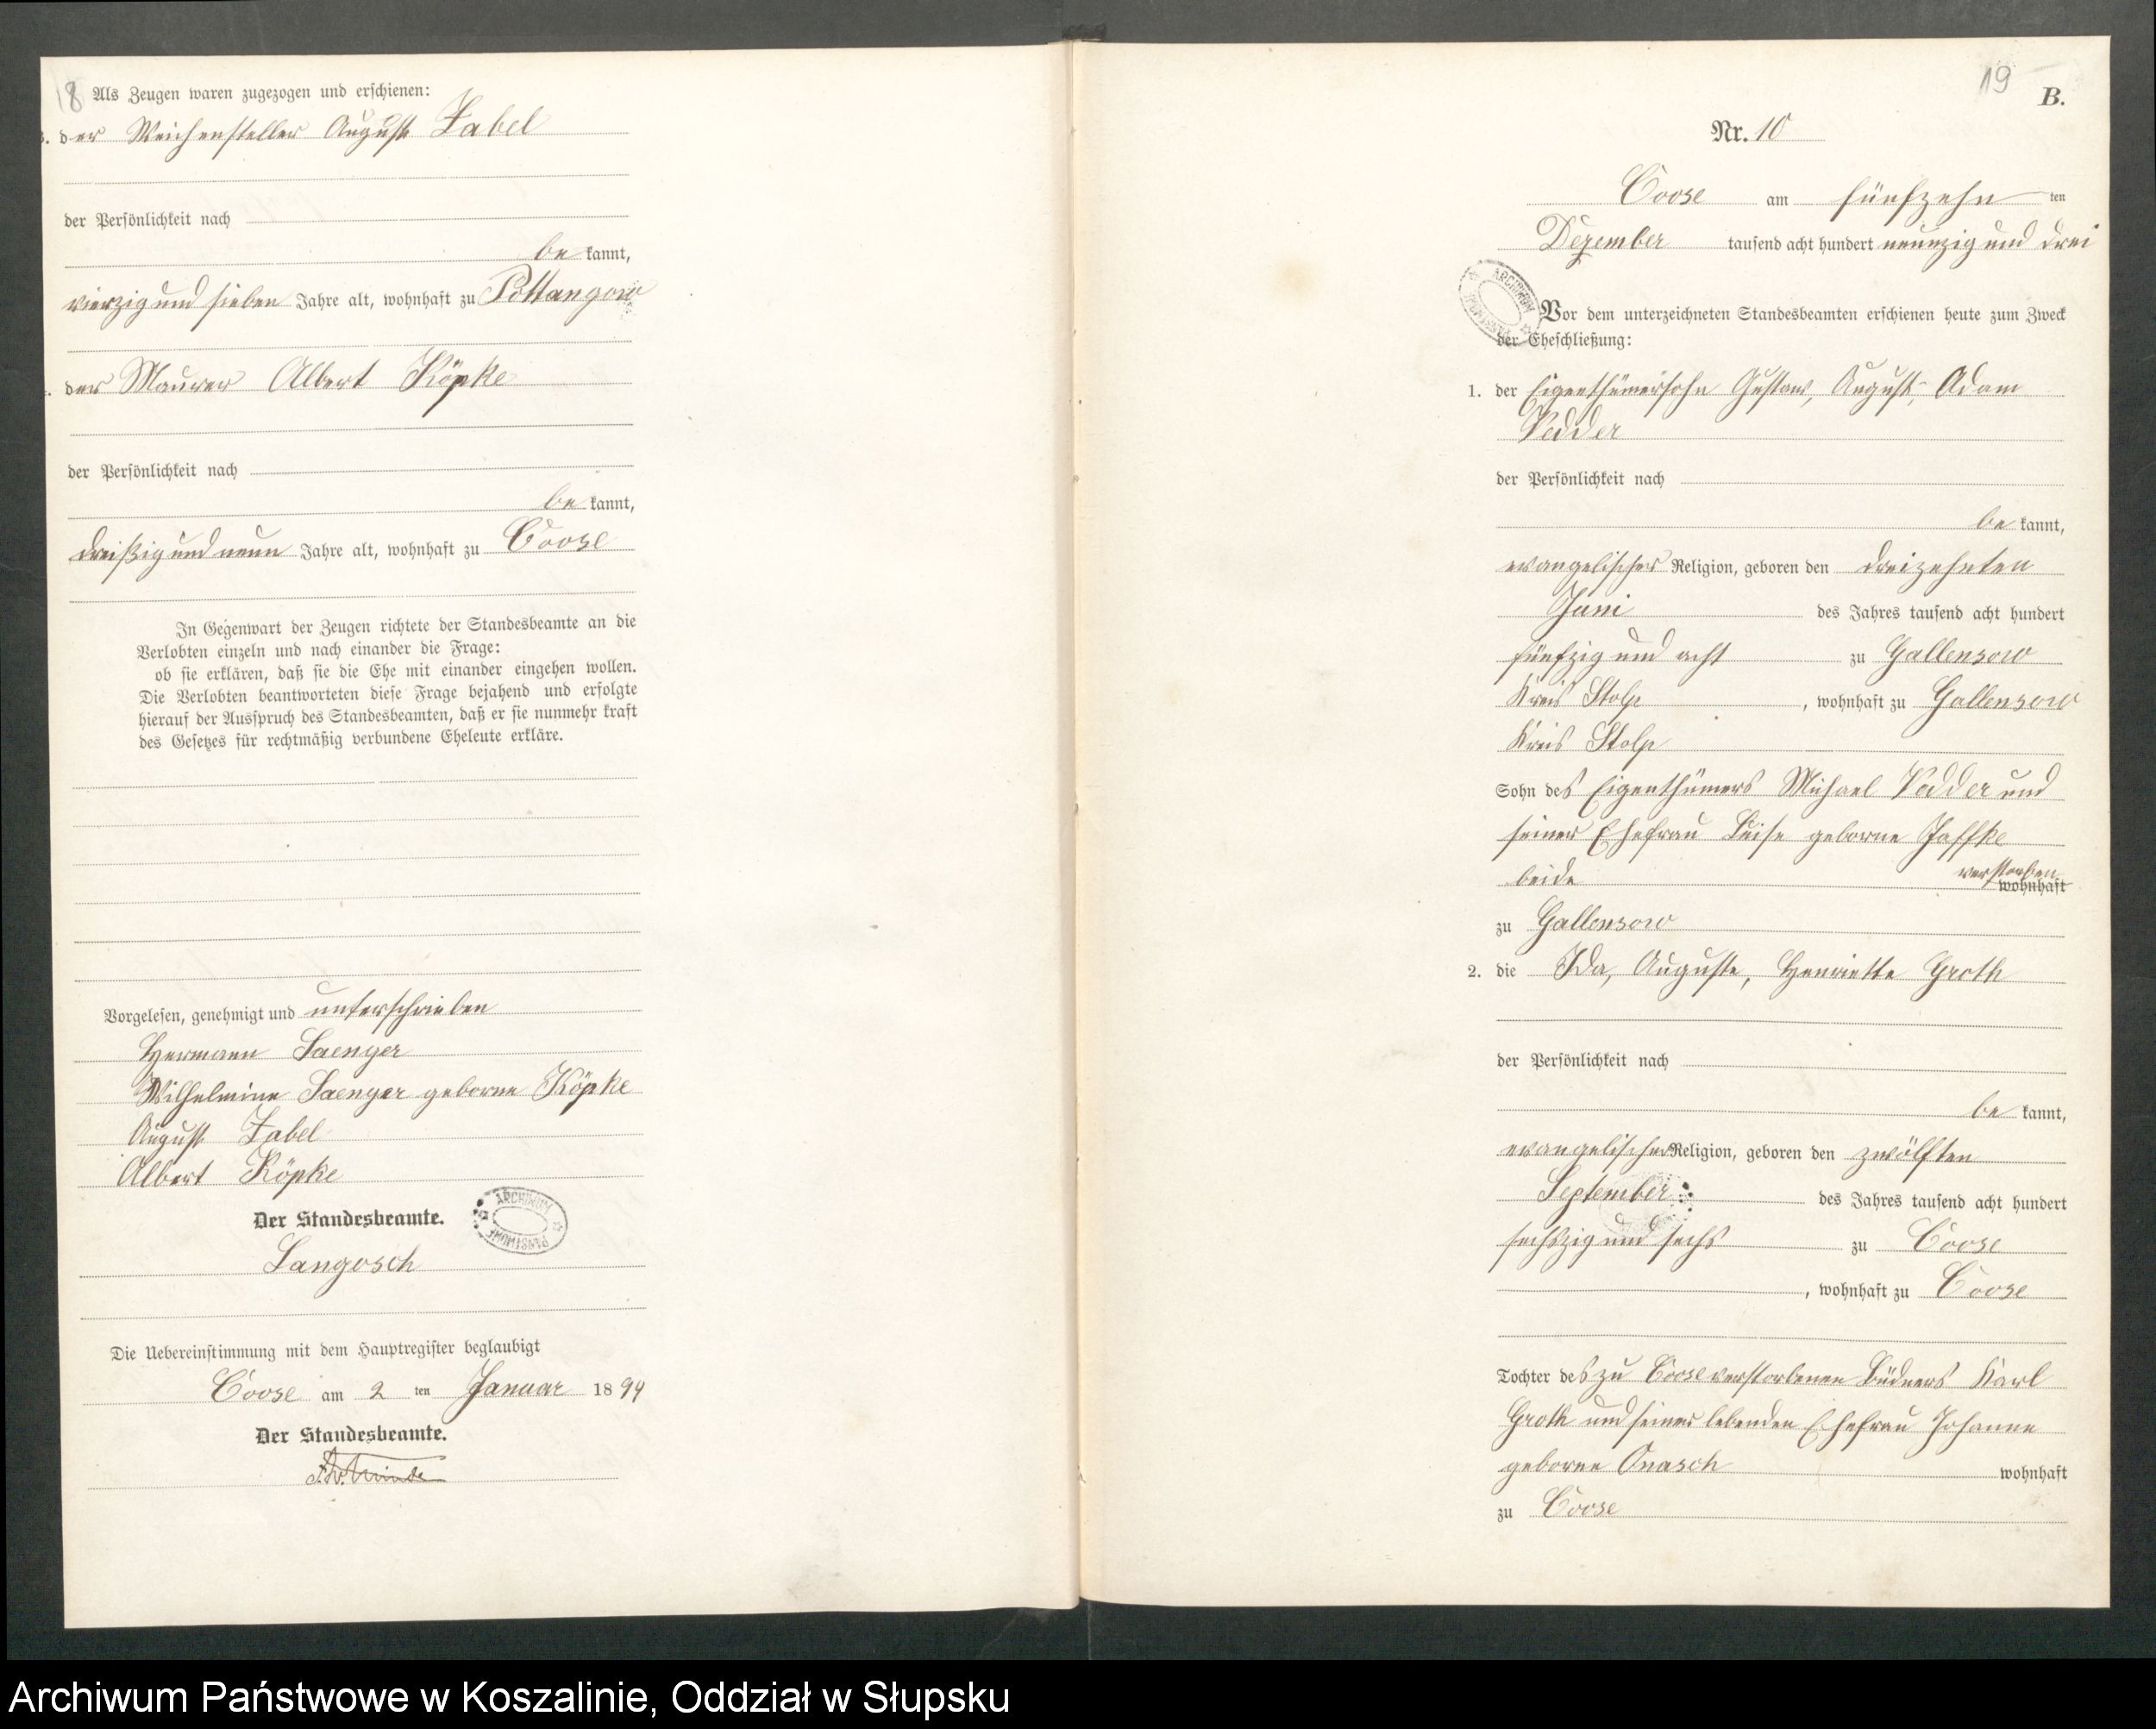 18
Als Zeugen waren zugezogen und erschienen:
3. der Weichensteller August Zabel
der Persönlichkeit nach
be kannt,
vierzig und sieben Jahre alt, wohnhaft zu Pottangow
4. der Maurer Albert Köpke
der Persönlichkeit nach
be kannt,
dreißig und neun Jahre alt, wohnhaft zu Coose
In Gegenwart der Zeugen richtete der Standesbeamte an die
Verlobten einzeln und nach einander die Frage:
ob sie erklären, daß sie die Ehe mit einander eingehen wollen.
Die Verlobten beantworteten diese Frage bejahend und erfolgte
hierauf der Ausspruch des Standesbeamten, daß er sie nunmehr kraft
des Gesetzes für rechtmäßig verbundene Eheleute erkläre.
Vorgelesen, genehmigt und unterschrieben
Hermann Saenger
Wilhelmine Saenger geborne Köpke
August Zabel
Albert Köpke
Der Standesbeamte.
Langosch
ARCHIWUM PAŃSTWOWE
Die Uebereinstimmung mit dem Hauptregister beglaubigt
Coose am 2 ten Januar 1894
Der Standesbeamte.
19
B.
Nr. 10
Coose am fünfzehn ten
Dezember tausend acht hundert neunzig und drei
ARCHIWUM PAŃSTWOWE
Vor dem unterzeichneten Standesbeamten erschienen heute zum Zweck
der Eheschließung:
1. der Eigenthümersohn Gustav, August, Adam
Vedder
der Persönlichkeit nach
be kannt,
evangelischer Religion, geboren den dreizehnten
Juni des Jahres tausend acht hundert
fünfzig und acht zu Gallensow
Kreis Stolp, wohnhaft zu Gallensow
Kreis Stolp
Sohn des Eigenthümers Michael Vedder und
seiner Ehefrau Luise geborne Jaffke
beide verstorben wohnhaft
zu Gallensow
2. die Ida, Auguste, Henriette Groth
der Persönlichkeit nach
be kannt,
evangelischer Religion, geboren den zwölften
September des Jahres tausend acht hundert
sechszig und sechs zu Coose
, wohnhaft zu Coose
Tochter des zu Coose verstorbenen Büdners Karl
Groth und seiner lebenden Ehefrau Johanne
geborne Onasch wohnhaft
zu Coose
Archiwum Państwowe w Koszalinie, Oddział w Słupsku